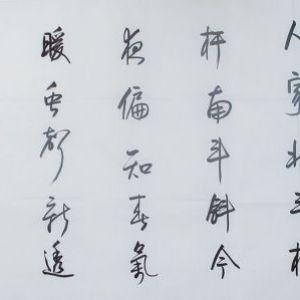 人家北斗
杆南斗斜今
夜偏知春氣
暖虫声新透